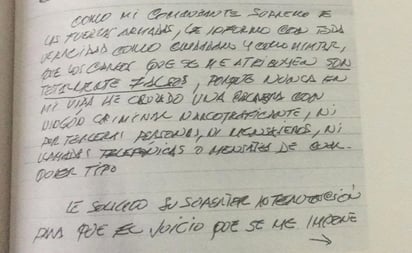 COMO MI COMANDANTE SUPREMO DE
LAS FUERZAS ARMADAS, LE INFORMO CON TODA
VERACIDAD COMO CIUDADANO Y COMO MILITAR,
QUE LOS CARGOS QUE SE ME ATRIBUYEN SON
TOTALMENTE FALSOS, PORQUE NUNCA EN
MI VIDA HE CRUZADO UNA PALABRA CON
NINGÚN CRIMINAL NARCOTRAFICANTE, NI
POR TERCERAS PERSONAS, NI MENSAJEROS, NI
LLAMADAS TELEFÓNICAS O MENSAJES DE CUAL-
QUIER TIPO
LE SOLICITO SU SUPERIOR INTERVENCIÓN
PARA QUE EL JUICIO QUE SE ME IMPONE